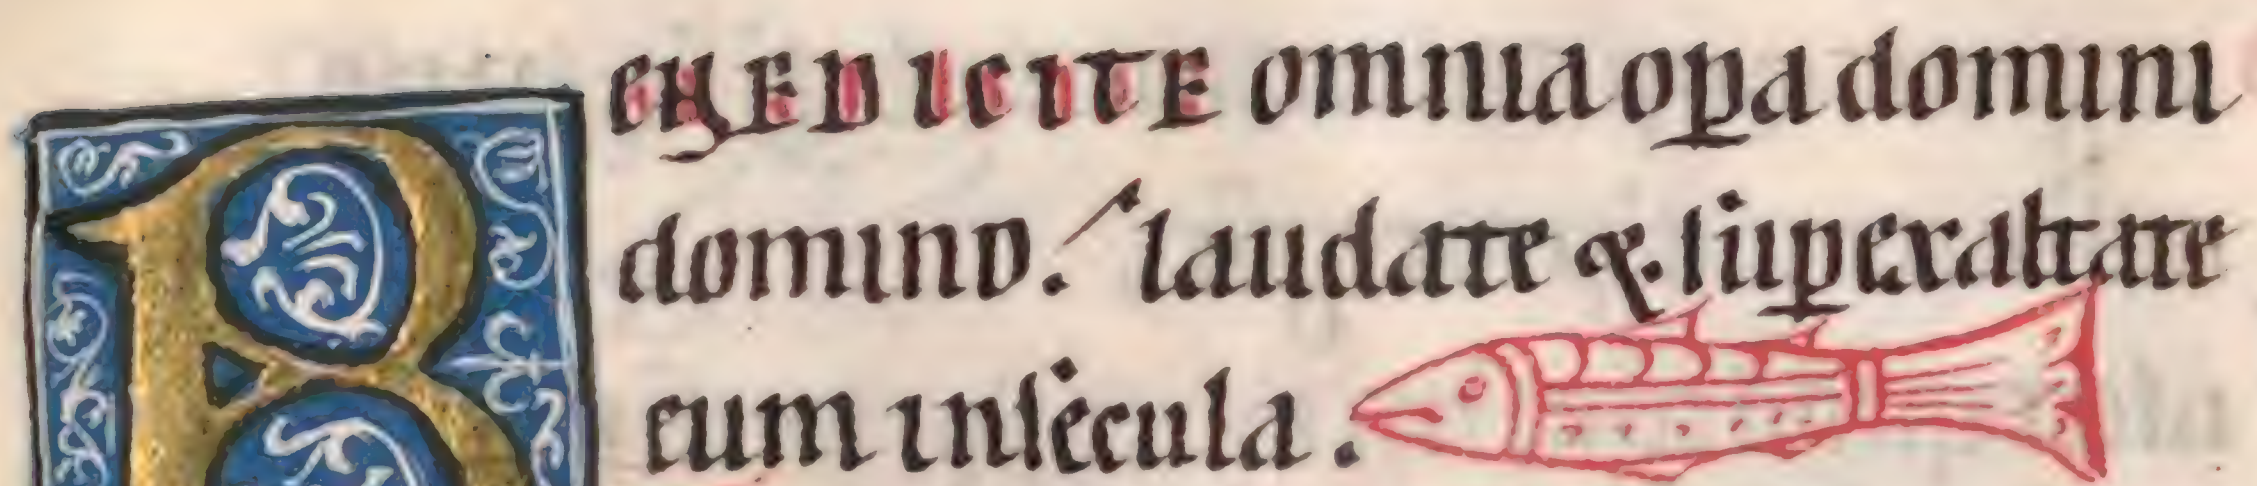 BENEDICITE omnia oꝑa domini
domino. laudate &. suꝑexaltate
eum insecula.